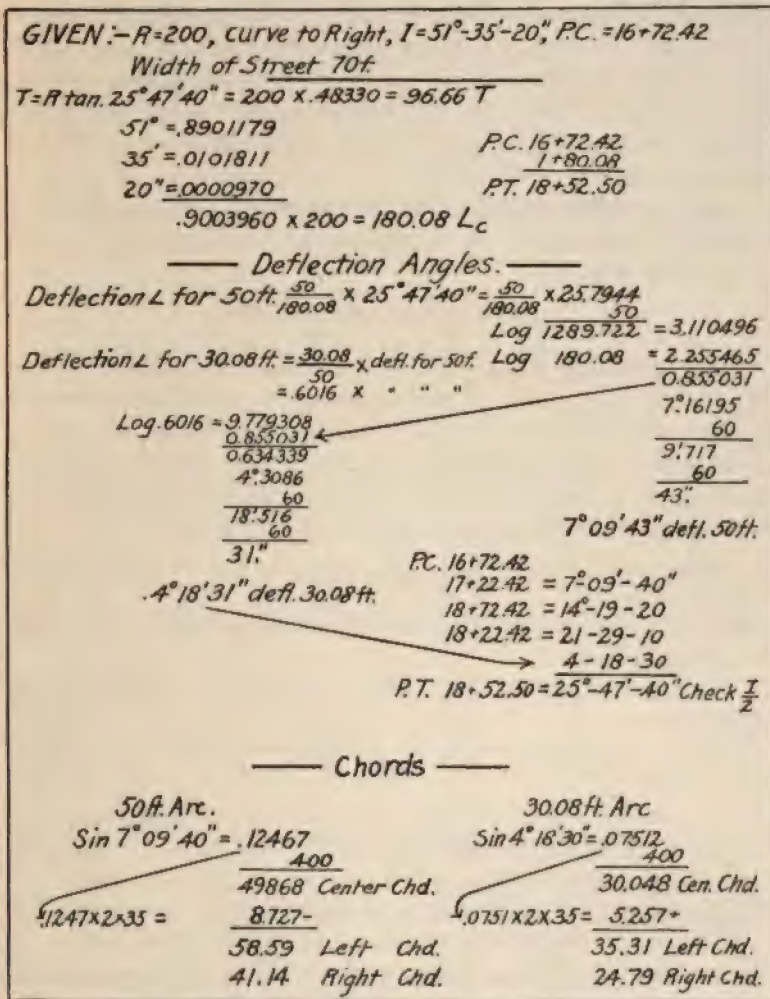 GIVEN:- R=200, curve to Right, I=51°-35'-20", P.C.=16+72.42
Width of Street 70f.
T=R tan. 25°47'40" = 200 x .48330 = 96.66 T
51° = .8901179
35' = .0101811
20" = .0000970
.9003960 x 200 = 180.08 Lc
P.C. 16+72.42
1+80.08
P.T. 18+52.50
Deflection Angles.
Deflection ∠ for 50ft. 50/180.08 x 25°47'40" = 50/180.08 x 25.7944
50
Log 1289.722 = 3.110496
Deflection ∠ for 30.08 ft. = 30.08/50 x defl. for 50f. Log 180.08 = 2.255465
= .6016 x " " "
0.855031
7°.16195
60
9'.717
60
43"
7° 09' 43" defl. 50ft.
Log .6016 = 9.779308
0.855031
0.634339
4°.3086
60
18'.516
60
31."
.4° 18' 31" defl. 30.08 ft.
P.C. 16+72.42
17+22.42 = 7°-09'-40"
18+72.42 = 14°-19-20
18+22.42 = 21-29-10
4-18-30
P.T. 18+52.50 = 25°-47'-40" Check I/2
Chords
50ft. Arc.
Sin 7°09'40" = .12467
400
49868 Center Chd.
.1247x2x35 = 8.727-
58.59 Left Chd.
41.14 Right Chd.
30.08 ft. Arc
Sin 4°18'30" = .07512
400
30.048 Cen. Chd.
.0751x2x35 = 5.257+
35.31 Left Chd.
24.79 Right Chd.